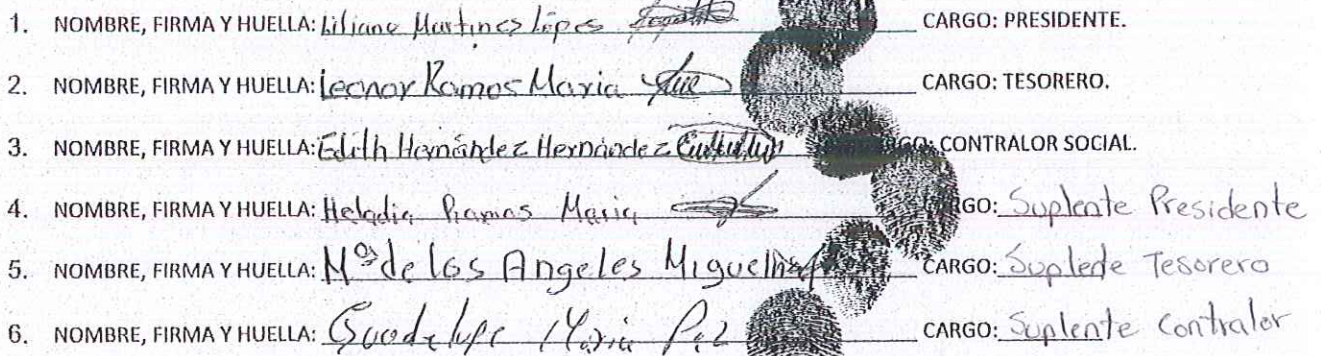 1. NOMBRE, FIRMA Y HUELLA: Liliana Martinez López CARGO: PRESIDENTE.
2. NOMBRE, FIRMA Y HUELLA: Leonor Ramos Maria CARGO: TESORERO.
3. NOMBRE, FIRMA Y HUELLA: Edith Hernández Hernández CONTRALOR SOCIAL.
4. NOMBRE, FIRMA Y HUELLA: Heladia Ramos Maria CARGO: Suplente Presidente
5. NOMBRE, FIRMA Y HUELLA: Mª de los Angeles Miguel CARGO: Suplente Tesorero
6. NOMBRE, FIRMA Y HUELLA: Guadalupe Maria Paz CARGO: Suplente Contralor